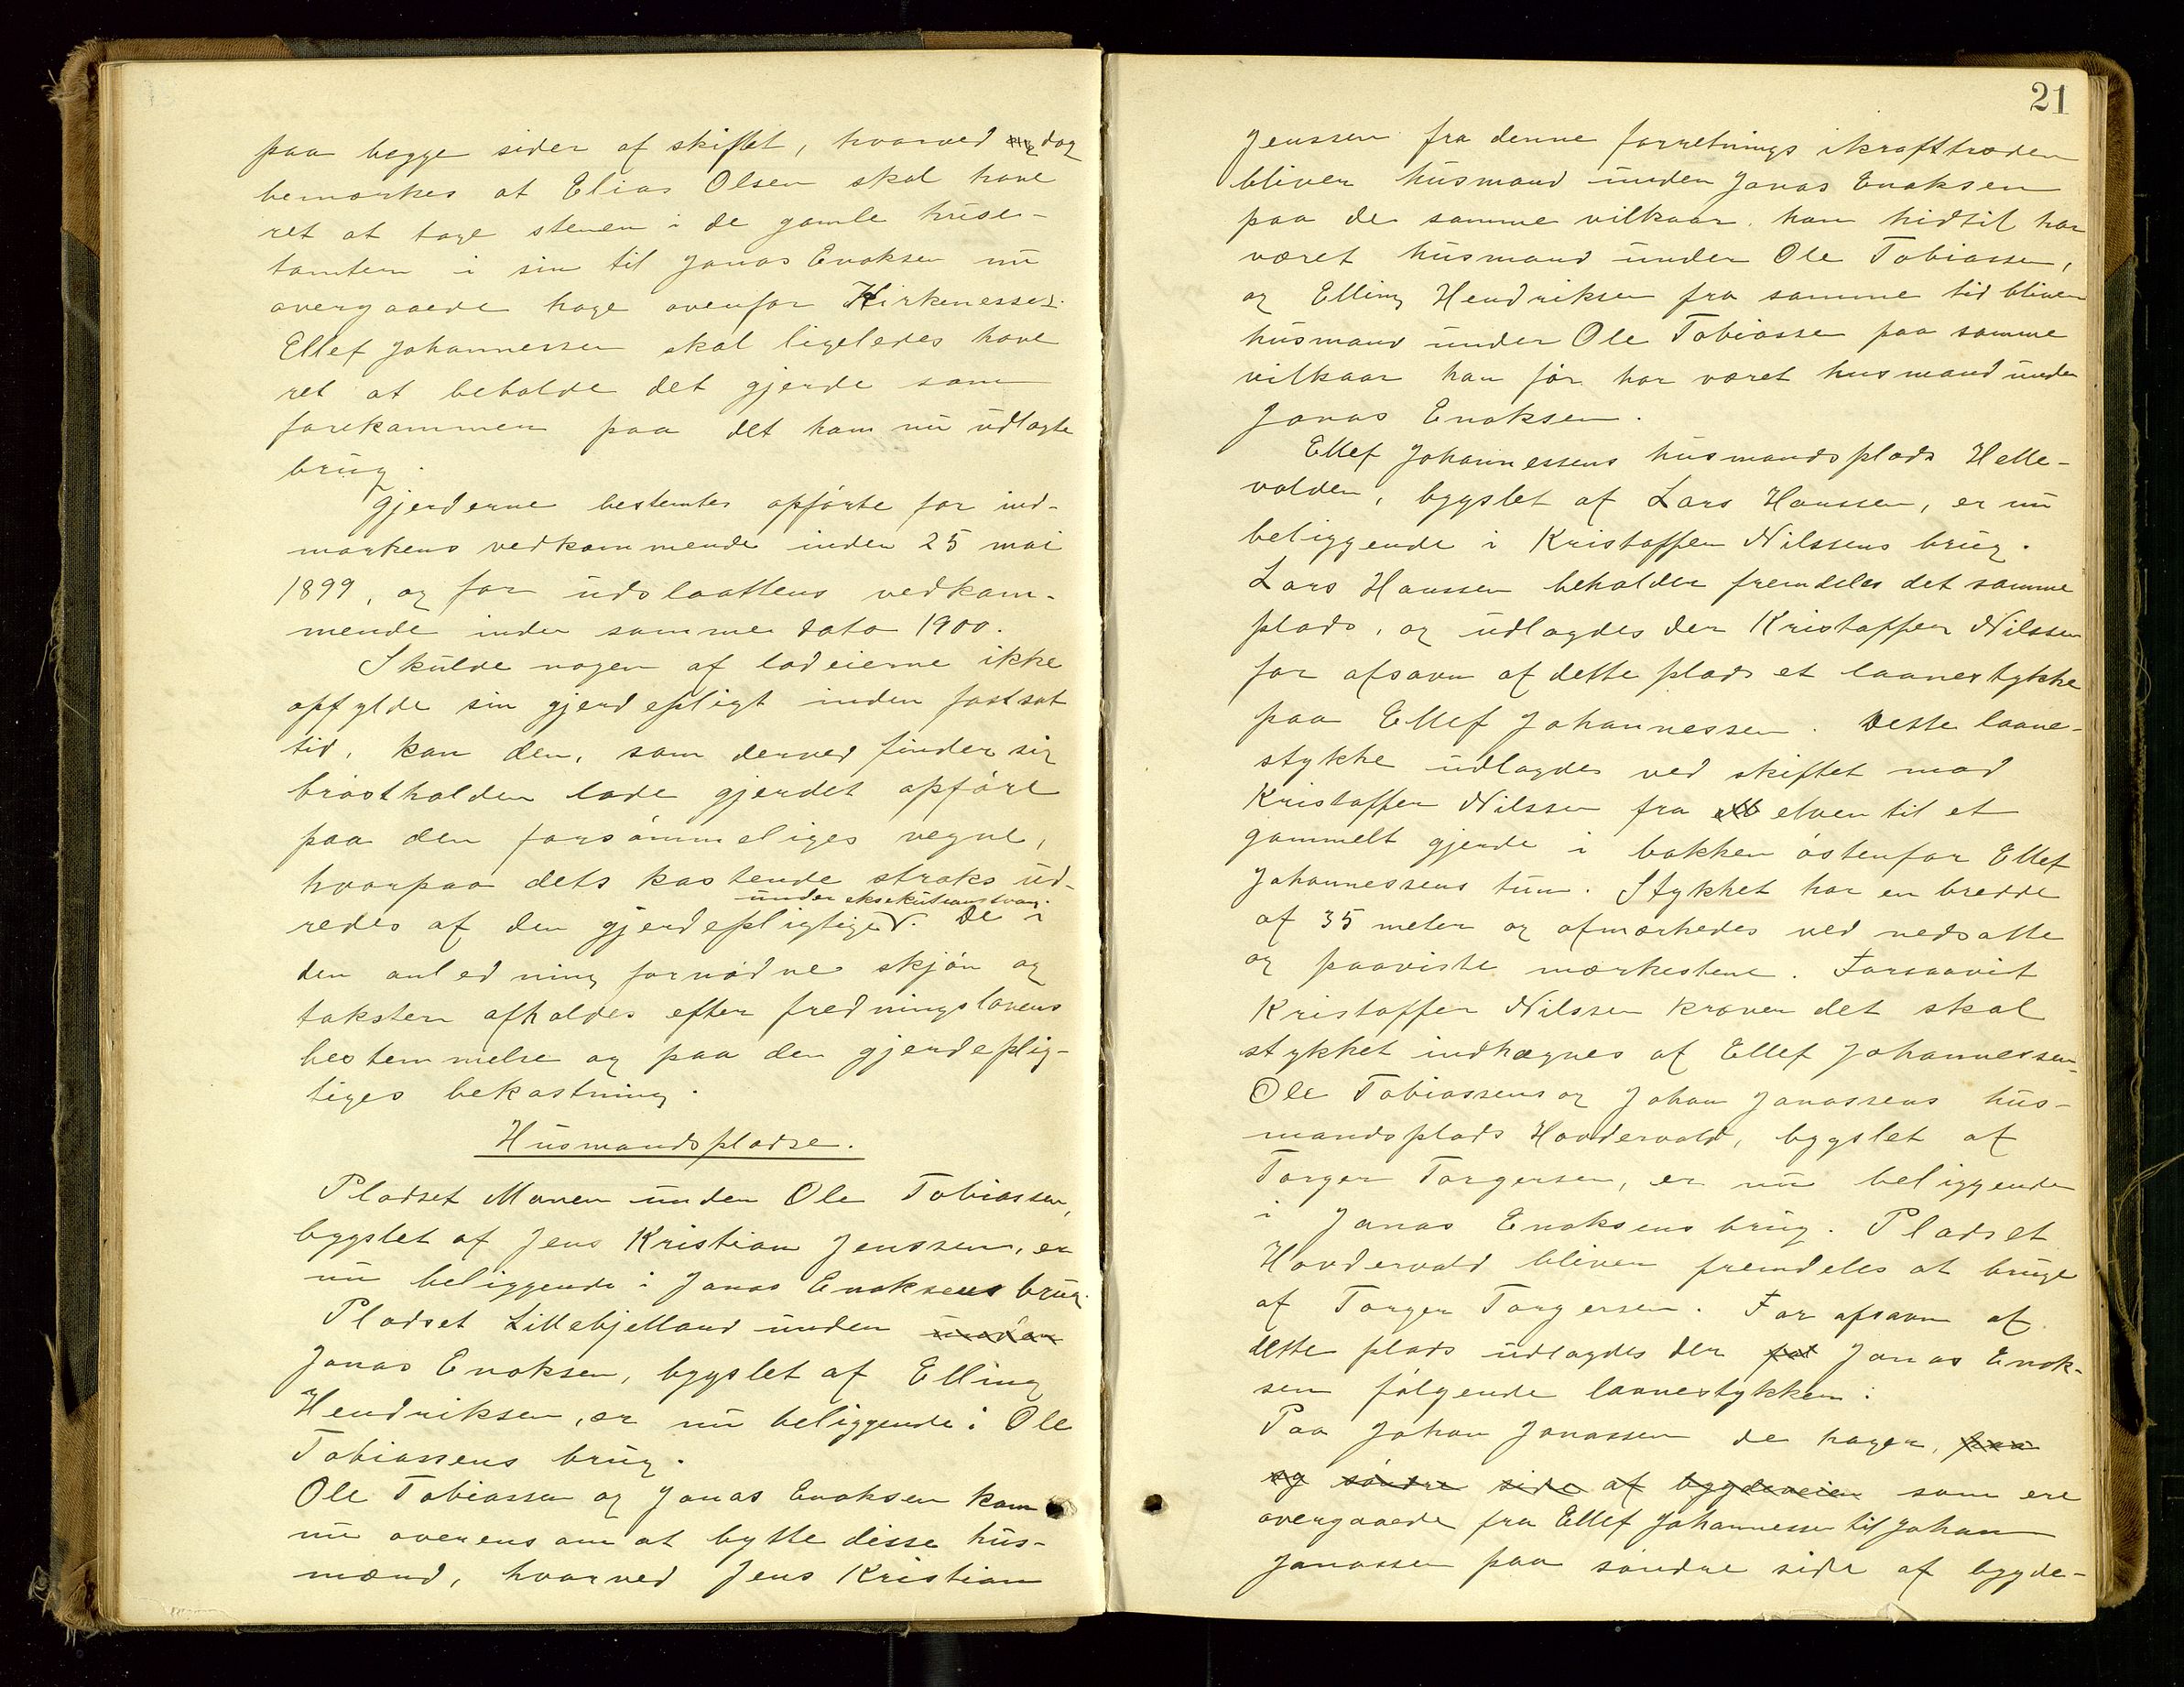 paa begge sider af skiftet, hvorved dog
bemærkes at Elias Olsen skal have
ret at tage stenen i de gamle huse-
tomter i sin til Jonas Enoksen nu
overgaaede hage ovenfor Kirkenesset.
Ellef Johannessen skal ligeledes have
ret at beholde det gjerde som
forekommer paa det ham nu udlagte
brug.
Gjerderne bestemtes opførte for ind-
markens vedkommende inden 25 mai
1899, og for udslaattens vedkom-
mende inden samme dato 1900.
Skulde nogen af lodeierne ikke
opfylde sin gjerdepligt inden fastsat
tid, kan den, som derved finder sig
brøstholden lade gjerdet opføre
paa den forsømmeliges vegne,
hvorpaa dets kostende straks ud-
under eksekutionstvang.
redes af den gjerdepligtige V. De i
den anledning fornødne skjøn og
takster afholdes efter fredningslovens
bestemmelse og paa den gjerdeplig-
tiges bekostning.
Husmandspladse.
Pladset Monen under Ole Tobiassen,
bygslet af Jens Kristian Jenssen, er
nu beliggende i Jonas Enoksens brug.
Pladset Lillebjelland under under
Jonas Enoksen, bygslet af Elling
Hendriksen, er nu beliggende i Ole
Tobiassens brug.
Ole Tobiassen og Jonas Enoksen kom
nu overens om at bytte disse hus-
mænd, hvorved Jens Kristian
21
Jenssen fra denne forretnings ikrafttræden
bliver husmand under Jonas Enoksen
paa de samme vilkaar han hidtil har
været husmand under Ole Tobiassen,
og Elling Hendriksen fra samme tid bliver
husmand under Ole Tobiassen paa samme
vilkaar han før har været husmand under
Jonas Enoksen.
Ellef Johannessens husmandsplads Helle-
volden, bygslet af Lars Hanssen, er nu
beliggende i Kristoffer Nilssens brug.
Lars Hanssen beholder fremdeles det samme
plads, og udlagdes der Kristoffer Nilssen
for afsavn af dette plads et laanestykke
paa Ellef Johannessen. Dette laane-
stykke udlagdes ved skiftet mod
Kristoffer Nilssen fra elven til et
gammelt gjerde i bakken østenfor Ellef
Johannessens tun. Stykket har en bredde
af 35 meter og afmærkedes ved nedsatte
og paaviste mærkestene. Forsaavidt
Kristoffer Nilssen kræver det skal
stykket indhegnes af Ellef Johannessen.
Ole Tobiassens og Johan Jonassens hus-
mandsplads Hovdervold, bygslet af
Torger Torgersen, er nu beliggende
i Jonas Enoksens brug. Pladset
Hovdervold bliver fremdeles at bruge
af Torger Torgersen. For afsavn af
dette plads udlagdes der Jonas Enok-
sen følgende laanestykker:
Paa Johan Jonassen de hager, paa
og søndre side af bygdeveien som ere
overgaaede fra Ellef Johannessen til Johan
Jonassen paa søndre side af bygde-